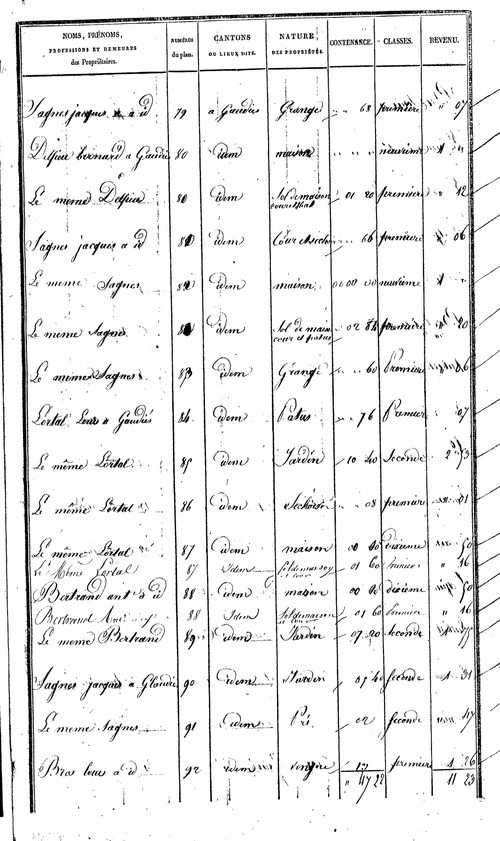 NOMS, PRÉNOMS, PROFESSIONS ET DEMEURES des Propriétaires. NUMÉROS du plan. CANTONS OU LIEUX DITS. NATURE DES PROPRIÉTÉS. CONTENANCE. CLASSES. REVENU.
Sagnes jacques a id 79 a Gaudiés Grange 68 première 07
Delpieu bernard a Gaudiés 80 idem maison
Le meme Delpieu 80 idem Sol de maison 01 20 première 12
Sagnes jacques a id 81 idem 66 première 06
Le meme Sagnes 82 idem maison 00 00 00
Le meme Sagnes idem Sol de maison cour et patus 02 84 première 20
Le meme Sagnes 83 idem Grange 60 Première 06
Lortal Louis a Gaudiés 84 idem Patus 76 Premier 07
Le même Lortal 85 idem Jardin 10 40 Seconde 2 53
Le même Lortal 86 idem Séchoir 08 première 01
Le même Lortal 87 idem maison 00 00 dixième 50
Le Même Lortal 87 Idem sol de maison et cour 01 60 premier 16
Bertrand ant a id 88 idem maison 00 00 dixième 50
Bertrand 88 Idem Sol de maison et cour 01 60 première 16
Le meme Bertrand 89 idem Jardin 07 20 seconde 1 75
Sagnes jacques a Glaudié 90 idem Jardin 05 40 seconde 1 31
Le meme Sagnes 91 idem Pré 02 seconde 47
Bras Louis a id 92 idem 17 premier 1 26
47 22 11 23